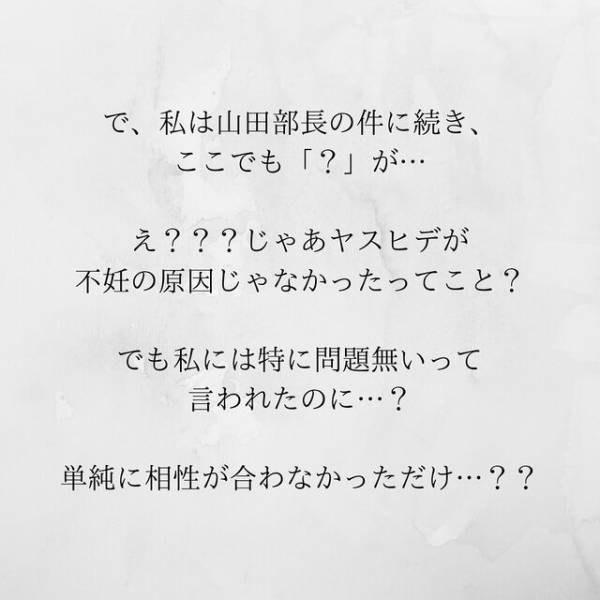 で、私は山田部長の件に続き、
ここでも「？」が…
え？？？じゃあヤスヒデが
不妊の原因じゃなかったってこと？
でも私には特に問題無いって
言われたのに…？
単純に相性が合わなかっただけ…？？